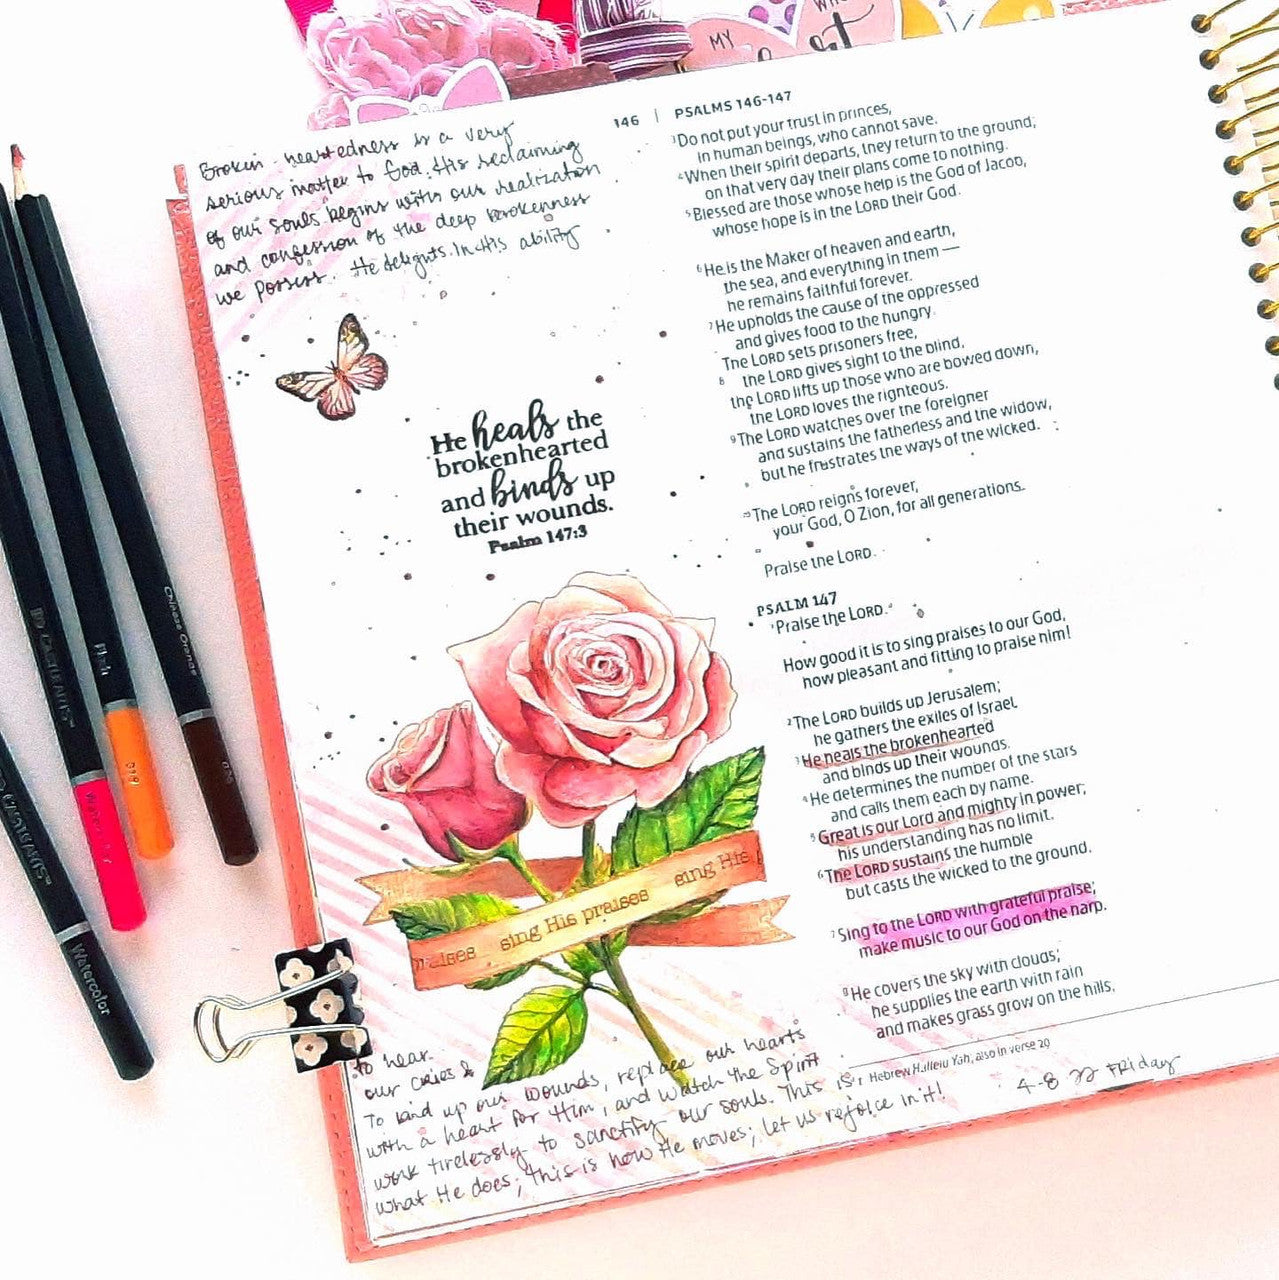 MY
146 | PSALMS 146-147
Broken-heartedness is a very
serious matter to God. His reclaiming
of our souls begins with our realization
and confession of the deep brokenness
we possess. He delights in His ability
He heals the
brokenhearted
and binds up
their wounds.
Psalm 147:3
sing His praises sing His
to hear
our cries &
To bind up our wounds, replace our hearts
with a heart for Him, and watch the Spirit
work tirelessly to sanctify our souls. This is
what He does; this is how He moves; let us rejoice in it!
3 Do not put your trust in princes,
in human beings, who cannot save.
4 When their spirit departs, they return to the ground;
on that very day their plans come to nothing.
5 Blessed are those whose help is the God of Jacob,
whose hope is in the LORD their God.
6 He is the Maker of heaven and earth,
the sea, and everything in them —
he remains faithful forever.
7 He upholds the cause of the oppressed
and gives food to the hungry.
The LORD sets prisoners free,
8 the LORD gives sight to the blind,
the LORD lifts up those who are bowed down,
the LORD loves the righteous.
9 The LORD watches over the foreigner
and sustains the fatherless and the widow,
but he frustrates the ways of the wicked.
10 The LORD reigns forever,
your God, O Zion, for all generations.
Praise the LORD.
PSALM 147
1 Praise the LORD.
How good it is to sing praises to our God,
how pleasant and fitting to praise him!
2 The LORD builds up Jerusalem;
he gathers the exiles of Israel.
3 He heals the brokenhearted
and binds up their wounds.
4 He determines the number of the stars
and calls them each by name.
5 Great is our Lord and mighty in power;
his understanding has no limit.
6 The LORD sustains the humble
but casts the wicked to the ground.
7 Sing to the LORD with grateful praise;
make music to our God on the harp.
8 He covers the sky with clouds;
he supplies the earth with rain
and makes grass grow on the hills.
1 Hebrew Hallelu Yah; also in verse 20
4-8-22 Friday
Chinese Orange
Watercolor